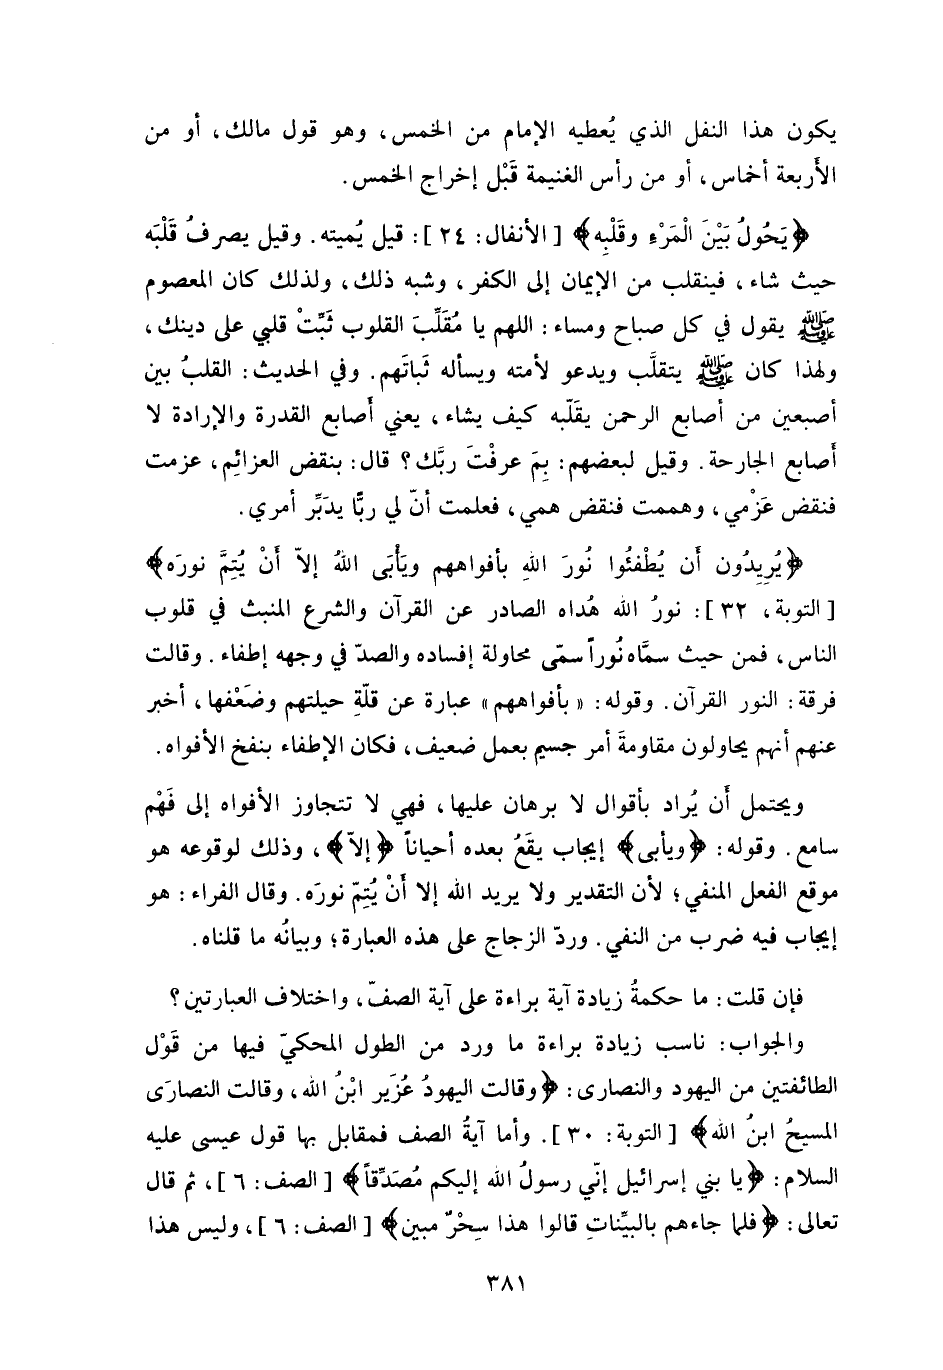 يكون هذا النفل الذي يُعطيه الإمام من الخمس، وهو قول مالك، أو من
الأَربعة أخماس، أو من رأس الغنيمة قَبْل إخراج الخمس.
﴿يَحُولُ بَيْنَ الْمَرْءِ وقَلْبِه﴾ [الأنفال: ٢٤]: قيل يُميته. وقيل يصرفُ قَلْبَه
حيث شاء، فينقلب من الإيمان إلى الكفر، وشبه ذلك، ولذلك كان المعصوم
ﷺ يقول في كل صباح ومساء: اللهم يا مُقَلِّبَ القلوب ثَبِّتْ قلبي على دينك،
ولهذا كان ﷺ يتقلَّب ويدعو لأمته ويسأله ثَباتَهم. وفي الحديث: القلبُ بين
أصبعين من أصابع الرحمن يقَلّبه كيف يشاء، يعني أَصابع القدرة والإرادة لا
أَصابع الجارحة. وقيل لبعضهم: بِمَ عرفْتَ ربَّك؟ قال: بنقض العزائِم، عزمت
فنقض عَزْمي، وهممت فنقض همي، فعلمت أنّ لي ربًّا يدبِّر أمري.
﴿يُرِيدُون أَن يُطْفئُوا نُورَ اللهِ بأفواههم ويَأْبَى اللهُ إلاّ أَنْ يُتِمَّ نورَه﴾
[التوبة، ٣٢]: نورُ الله هُداه الصادر عن القرآن والشرع المنبث في قلوب
الناس، فمن حيث سمَّاه نُوراً سمّى محاولة إفساده والصدّ في وجهه إطفاء. وقالت
فرقة: النور القرآن. وقوله: «بأفواههم» عبارة عن قلّةِ حيلتهم وضَعْفها، أخبر
عنهم أنهم يحاولون مقاومةَ أمر جسيم بعمل ضعيف، فكان الإطفاء بنفخ الأفواه.
ويحتمل أَن يُراد بأقوال لا برهان عليها، فهي لا تتجاوز الأفواه إلى فَهْم
سامع. وقوله: ﴿ويأبى﴾ إيجاب يقَعُ بعده أحياناً ﴿إلاّ﴾، وذلك لوقوعه هو
موقع الفعل المنفي؛ لأن التقدير ولا يريد الله إلا أَنْ يُتِمّ نورَه. وقال الفراء: هو
إيجاب فيه ضرب من النفي. وردّ الزجاج على هذه العبارة؛ وبيانُه ما قلناه.
فإن قلت: ما حكمةُ زيادة آية براءة على آية الصفّ، واختلاف العبارتين؟
والجواب: ناسب زيادة براءة ما ورد من الطول المحكيّ فيها من قَوْل
الطائفتين من اليهود والنصارى: ﴿وقالت اليهودُ عُزَير ابْنُ الله، وقالت النصارَى
المسيحُ ابنُ الله﴾ [التوبة: ٣٠]. وأما آيةُ الصف فمقابل بها قول عيسى عليه
السلام: ﴿يا بني إسرائيل إنّي رسولُ الله إليكم مُصَدِّقاً﴾ [الصف: ٦]، ثم قال
تعالى: ﴿فلما جاءهم بالبيِّناتِ قالوا هذا سِحْرٌ مبين﴾ [الصف: ٦]، وليس هذا
٣٨١